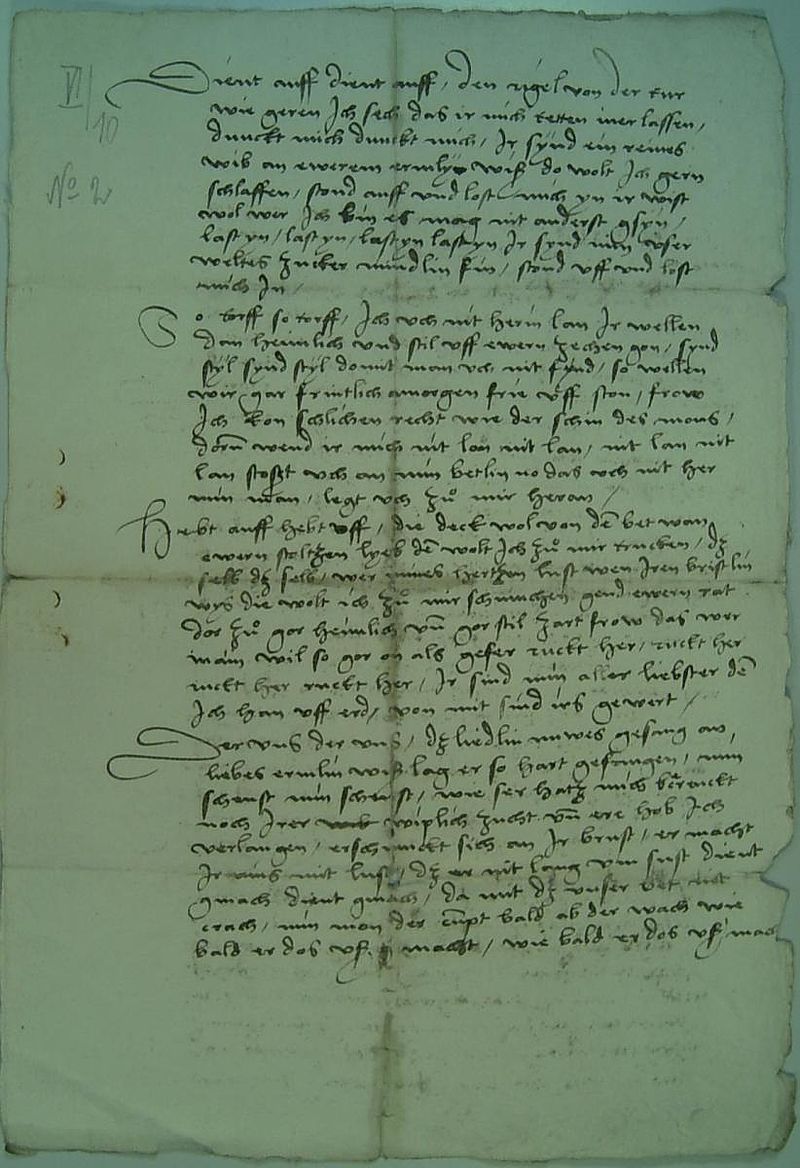 VI/10
No 2
Dient auff dient auff / den rigel von der tur
wie geren Jch sech das ir mich retten iner lassen /
dunckt mich dunckt mich / Jr synd ein reines
wib an ewerem ermlyn wiß do wolt Jch gern
schlaffen / stond auff vnd lost mich yn ir wist
wol wer Jch bin es mag nit anderst gsyn /
last yn / last yn / last yn last yn Jr synd min vser
weltes zucker mundlin fin / stond vff vnd lost
mich Jn /
So torff so torff / Jch vch nit herin lan Jr wellen
dan heimlich vnd stil vff ewern zechen gon / synd
styl synd styl domit man vch nit fynd / so wellen
wir gar frintlich amorgen frie vff ston / frow
Jch kon schlichen recht wie der schin des mons /
dorum wend ir mich nit lon nit lan / nit lan nit
lan stost vch an min betlin no das vch nit her
min man / legt vch zů mir heran /
Hebt auff hebt vff / die deck wol von dē bet wan
ewern stoltzen lyeb dē wolt Jch zů mir trucken / dz
selb dz selb / wer mines hertzen lust wen Jren bristlin
wys die wolt ich zů mir schmucken gend ewern rat
dor zů gor heimlich vn̄ gor stil zart frow das wer
mäin wil so gor on als gefer ruckt her / ruckt her
ruckt her ruckt her / Jr sind min aller liebster dē
Jch han vff erd / von mit sind irs gewert /
Der vns der vns / dz liedlin nuwes gesang an
liebes ermlin wiß lag er so hart gefangen / mim
schenst min schenst / wie ser hatz mich
noch Jrer wiplich zucht vn̄ ere hob Jch
verlangen / erschmuckt sich an Jr brust / er macht
Jr mit lust / dz er nit lang vm sust dient
gmach dient gmach / da mit dz vnser bet nit
crach / min mon der bald ab der wach wie
bald er dos vff macht / wie bald er dos vff mac